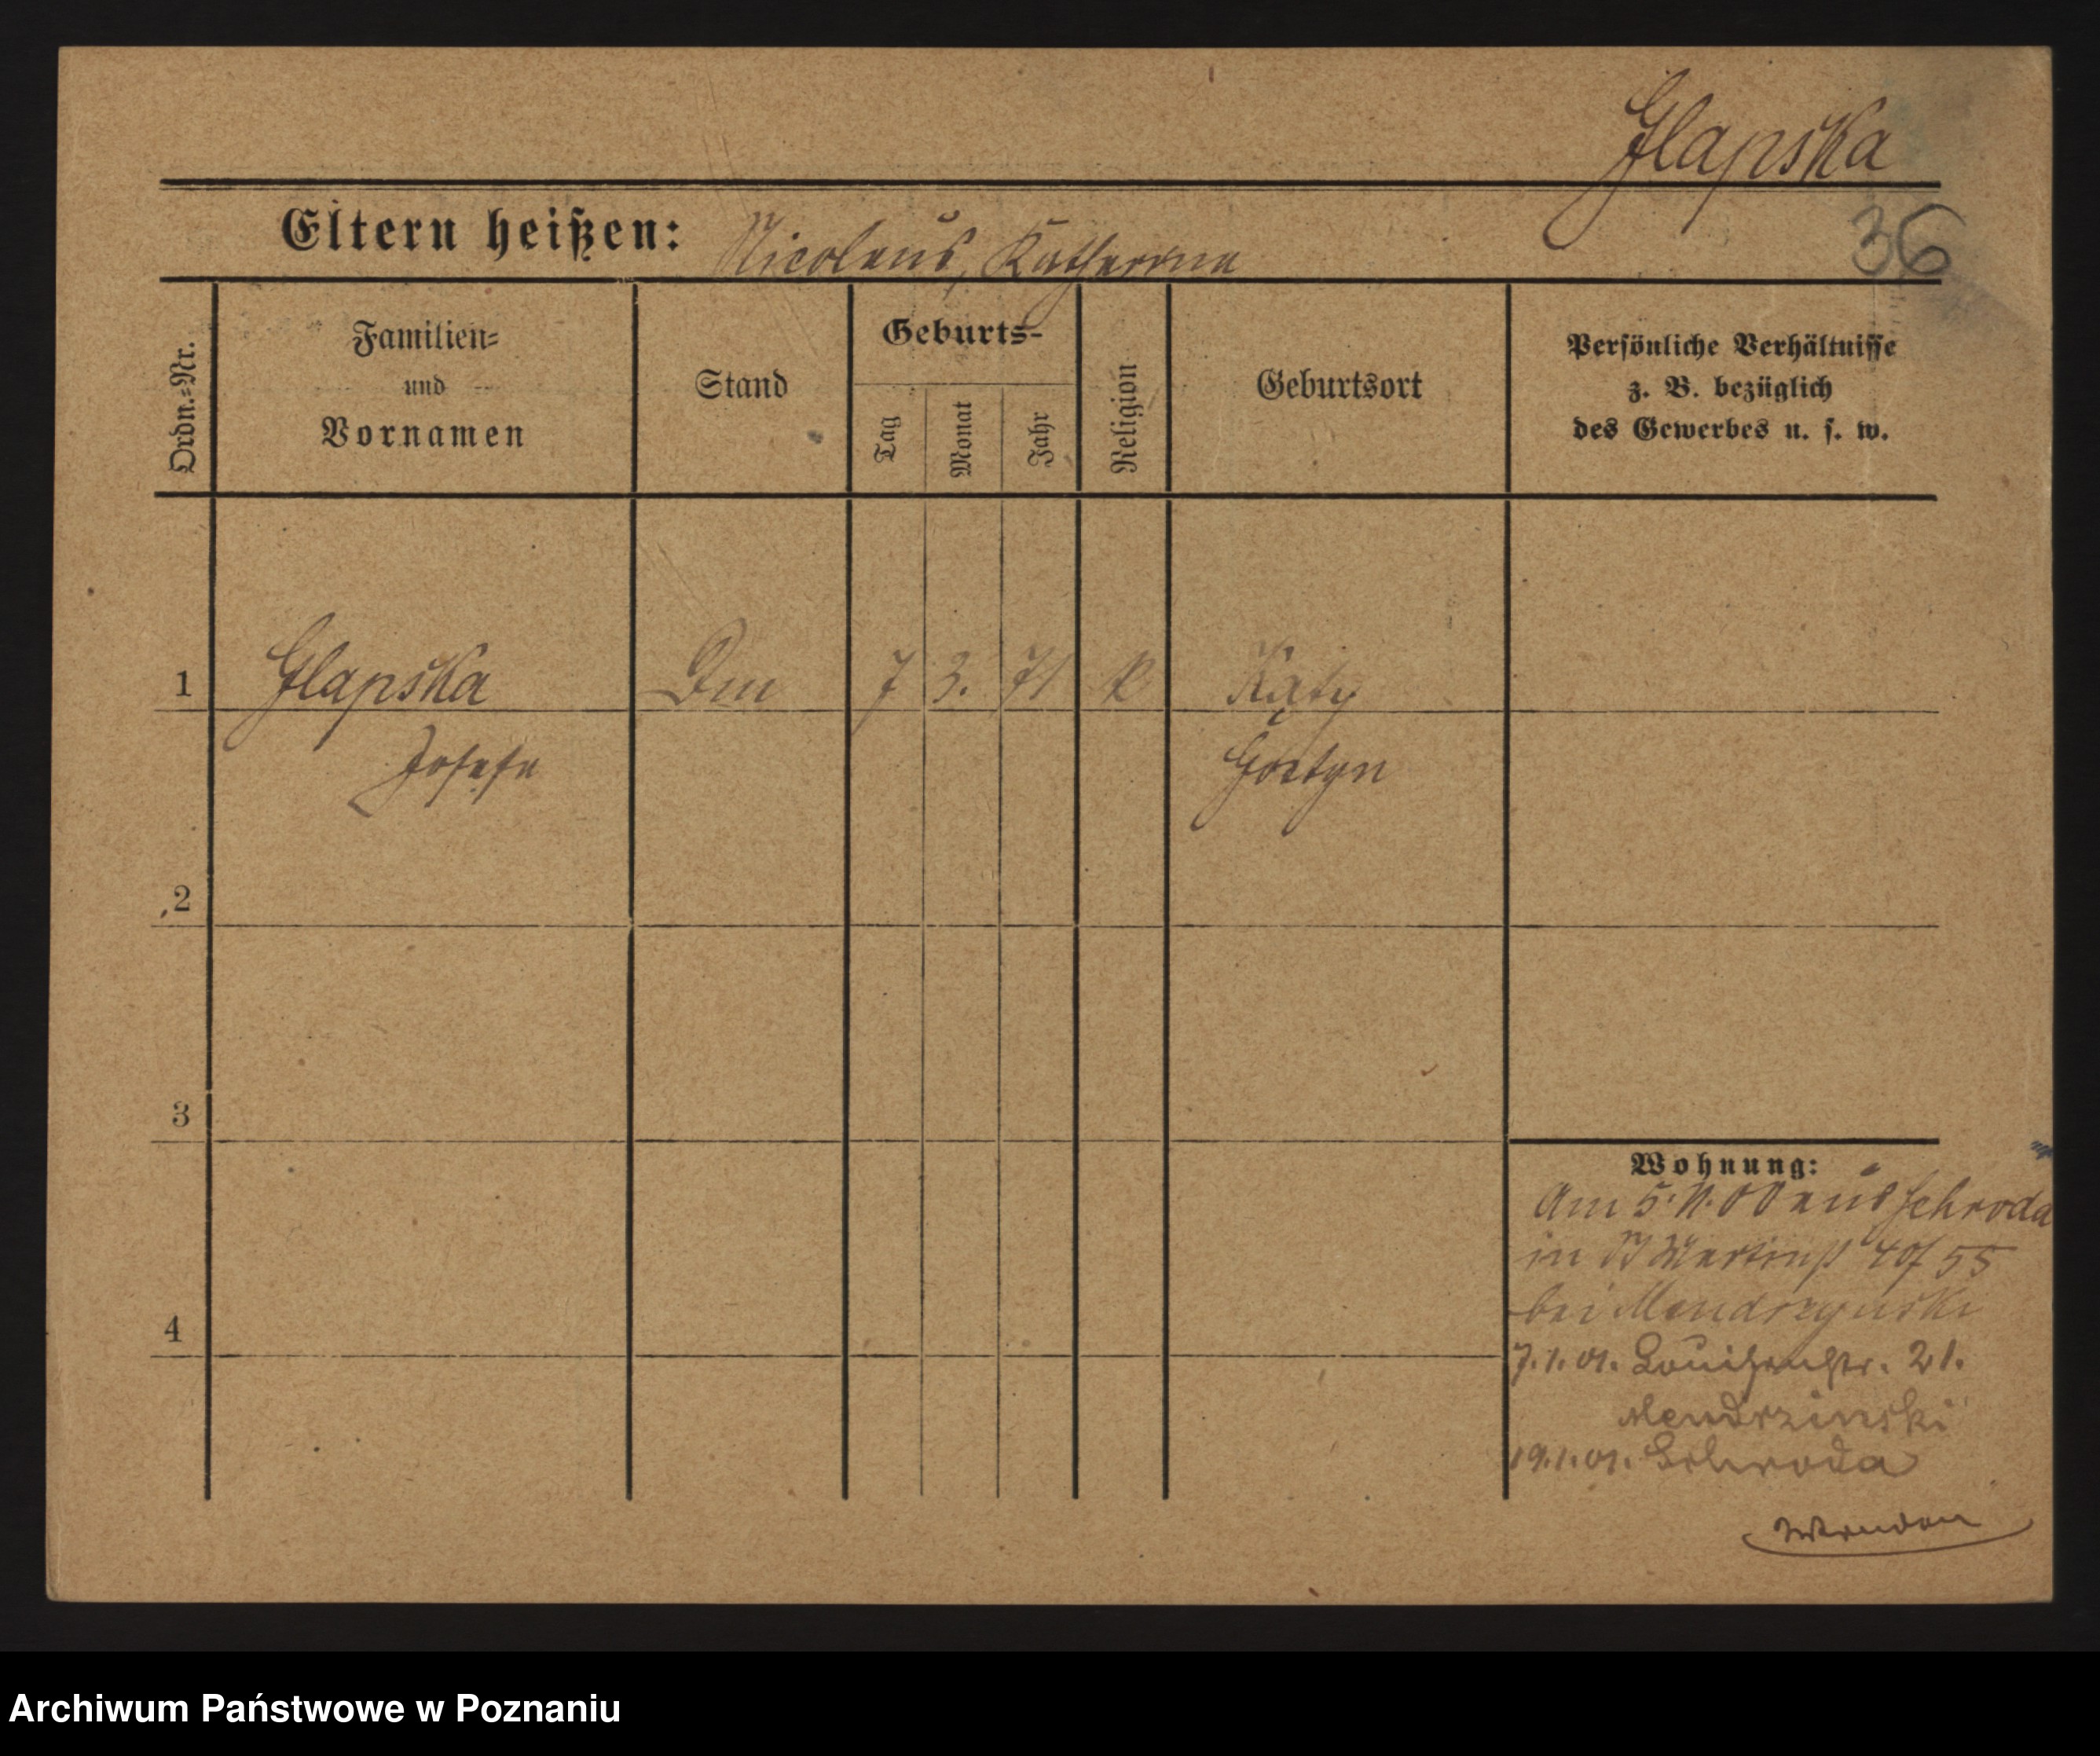 Glapska
36
Eltern heißen: Nicolaus, Katharina
Ordn.-Nr.
Familien-
und
Vornamen
Stand
Geburts-
Tag
Monat
Jahr
Religion
Geburtsort
Persönliche Verhältnisse
z. B. bezüglich
des Gewerbes u. s. w.
1 Glapska Dm 7 3. 71 k Konty
Josefa Gostyn
2
3
4
Wohnung:
Am 5. 11. 00 aus Schroda
in St Martinstr 55
bei Mendrzynski
7.1.01. Louisenstr. 21.
Mendrzinski
19.1.01. Schroda
Wenden
Archiwum Państwowe w Poznaniu